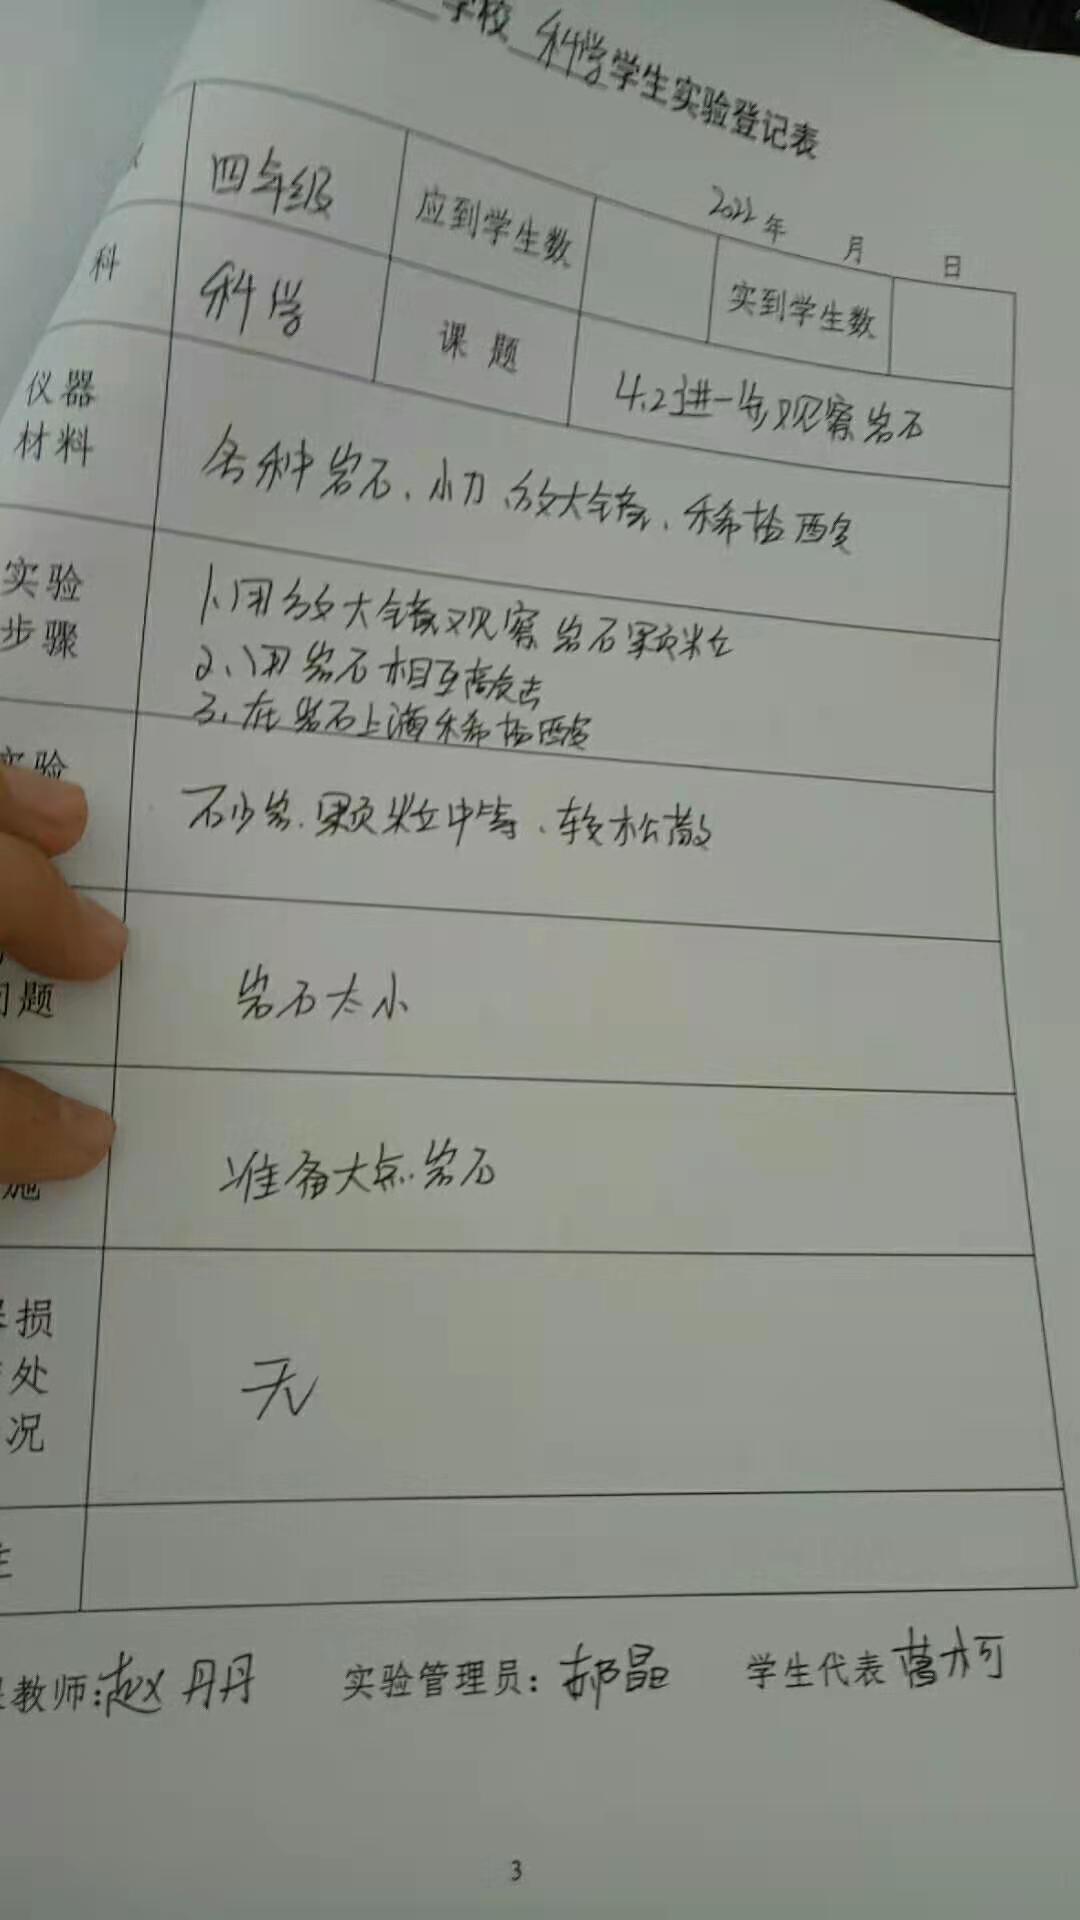 学校 科学学生实验登记表
2022年 月 日
四年级 应到学生数 实到学生数
科 科学 课题 4.2进一步观察岩石
仪器
材料
各种岩石、小刀、放大镜、稀盐酸
实验
步骤
1、用放大镜观察岩石颗粒
2、用岩石相互敲击
3、在岩石上滴稀盐酸
实验
砂岩、颗粒中等、较松散
问题
岩石太小
施
准备大点岩石
损
处
况
无
教师:赵丹丹 实验管理员: 学生代表 曹柯
3